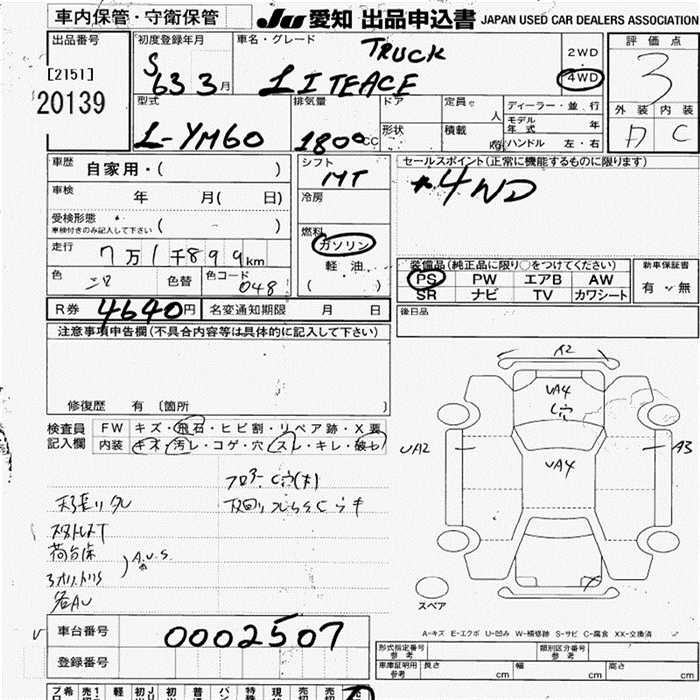 車内保管・守衛保管 JU 愛知 出品申込書 JAPAN USED CAR DEALERS ASSOCIATION
出品番号
[2151]
20139
初度登録年月
S 63 3月
車名・グレード
TRUCK
LITEACE
2WD
4WD
評価点
3
外装 内装
A C
型式
L-YM60
排気量
1800cc
ドア
形状
定員 人
積載 kg
ディーラー・並行
モデル年式 年
ハンドル 左・右
車歴 自家用・( )
車検 年 月( 日)
受検形態
車検付きのみ記入して下さい ( )
走行 7万1千899km
色 色替 色コード 048
シフト
MT
冷房
燃料
ガソリン
軽油
( )
セールスポイント(正常に機能するものに限ります)
*4WD
装備品(純正品に限り○をつけてください)
PS PW エアB AW
SR ナビ TV カワシート
新車保証書
有 無
後日品
R券 4640円 名変通知期限 月 日
注意事項申告欄(不具合内容等は具体的に記入して下さい)
修復歴 有 〔箇所 〕
検査員記入欄
FW キズ・飛石・ヒビ割・リペア跡・X要
内装 キズ・汚レ・コゲ・穴・スレ・キレ・破レ
A2
UA4
C穴
UA2
UA4
A3
スペア
A=キズ E=エクボ U=凹み W=補修跡 S=サビ C=腐食 XX=交換済
車台番号 0002507
登録番号
形式指定番号 参考
類別区分番号 参考
車庫証明用 参考 長さ cm 幅 cm 高さ cm